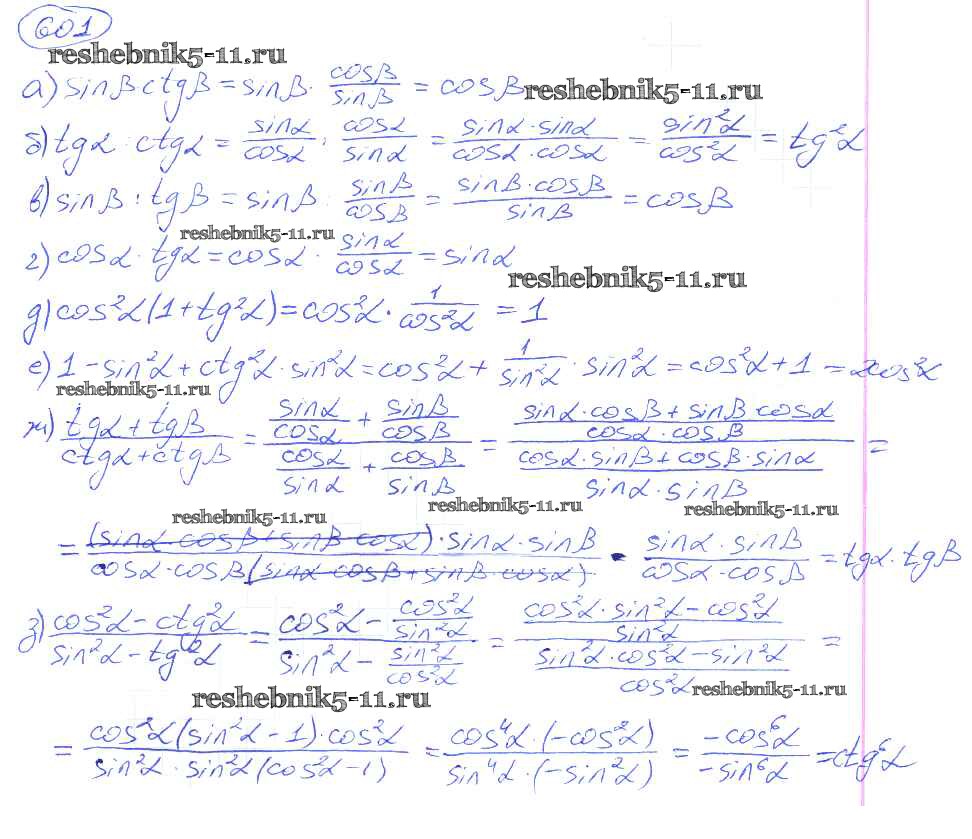 601
reshebnik5-11.ru
а) sinβ·ctgβ = sinβ · cosβ/sinβ = cosβ reshebnik5-11.ru
б) tgα : ctgα = sinα/cosα : cosα/sinα = sinα·sinα/cosα·cosα = sin²α/cos²α = tg²α
в) sinβ : tgβ = sinβ : sinβ/cosβ = sinβ·cosβ/sinβ = cosβ
reshebnik5-11.ru
г) cosα · tgα = cosα · sinα/cosα = sinα
reshebnik5-11.ru
д) cos²α(1+tg²α) = cos²α · 1/cos²α = 1
е) 1 - sin²α + ctg²α · sin²α = cos²α + 1/sin²α · sin²α = cos²α + 1 = 2cos²α
reshebnik5-11.ru
ж) (tgα + tgβ)/(ctgα + ctgβ) = (sinα/cosα + sinβ/cosβ)/(cosα/sinα + cosβ/sinβ) = ((sinα·cosβ + sinβ·cosα)/(cosα·cosβ))/((cosα·sinβ + cosβ·sinα)/(sinα·sinβ)) =
reshebnik5-11.ru reshebnik5-11.ru reshebnik5-11.ru
= ((sinα·cosβ + sinβ·cosα)·sinα·sinβ)/(cosα·cosβ(sinα·cosβ + sinβ·cosα)) = (sinα·sinβ)/(cosα·cosβ) = tgα·tgβ
з) (cos²α - ctg²α)/(sin²α - tg²α) = (cos²α - cos²α/sin²α)/(sin²α - sin²α/cos²α) = ((cos²α·sin²α - cos²α)/sin²α)/((sin²α·cos²α - sin²α)/cos²α) =
reshebnik5-11.ru reshebnik5-11.ru
= (cos²α(sin²α - 1)·cos²α)/(sin²α·sin²α(cos²α - 1)) = (cos⁴α·(-cos²α))/(sin⁴α·(-sin²α)) = -cos⁶α/-sin⁶α = ctg⁶α